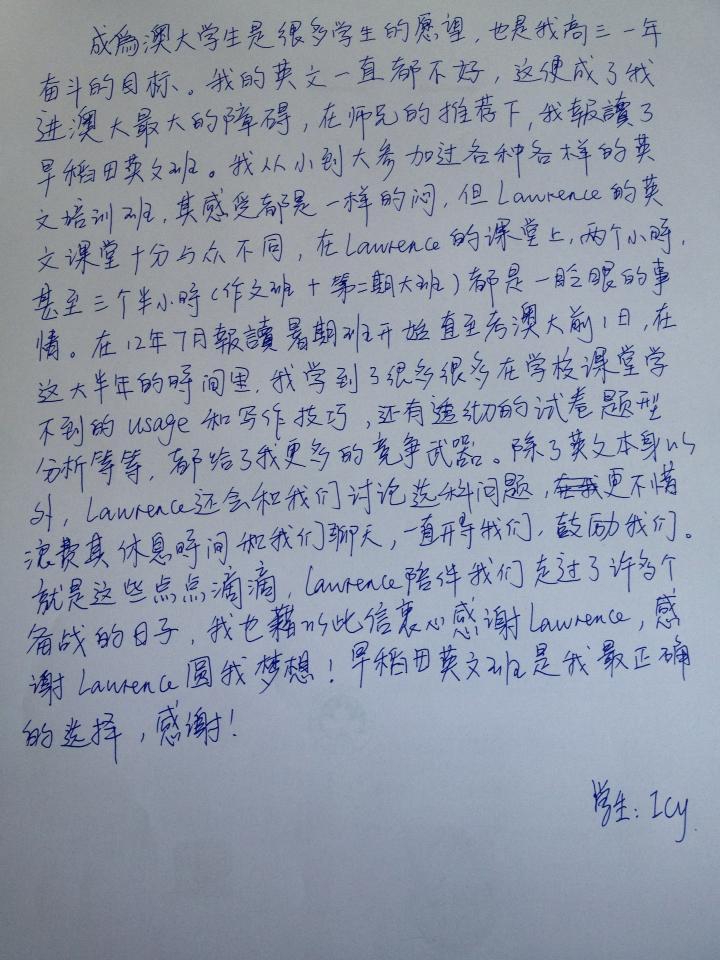 成爲澳大学生是很多学生的愿望，也是我高三一年
奋斗的目标。我的英文一直都不好，这便成了我
进澳大最大的障碍，在师兄的推荐下，我報讀了
早稻田英文班。我从小到大参加过各种各样的英
文培训班，其感受都是一样的闷，但Lawrence的英
文课堂十分与众不同，在Lawrence的课堂上，两个小時，
甚至三个半小時（作文班＋第二期大班）都是一眨眼的事
情。在12年7月報讀暑期班开始直至考澳大前1日，在
这大半年的時间里，我学到了很多很多在学校课堂学
不到的usage和写作技巧，还有透彻的试卷题型
分析等等，都给了我更多的竞争武器。除了英文本身以
外，Lawrence还会和我们讨论选科问题，更不惜
浪费其休息時间和我们聊天，一直开导我们，鼓励我们。
就是这些点点滴滴，Lawrence陪伴我们走过了许多个
备战的日子，我也藉以此信衷心感谢Lawrence，感
谢Lawrence圆我梦想！早稻田英文班是我最正确
的选择，感谢！
学生：Icy